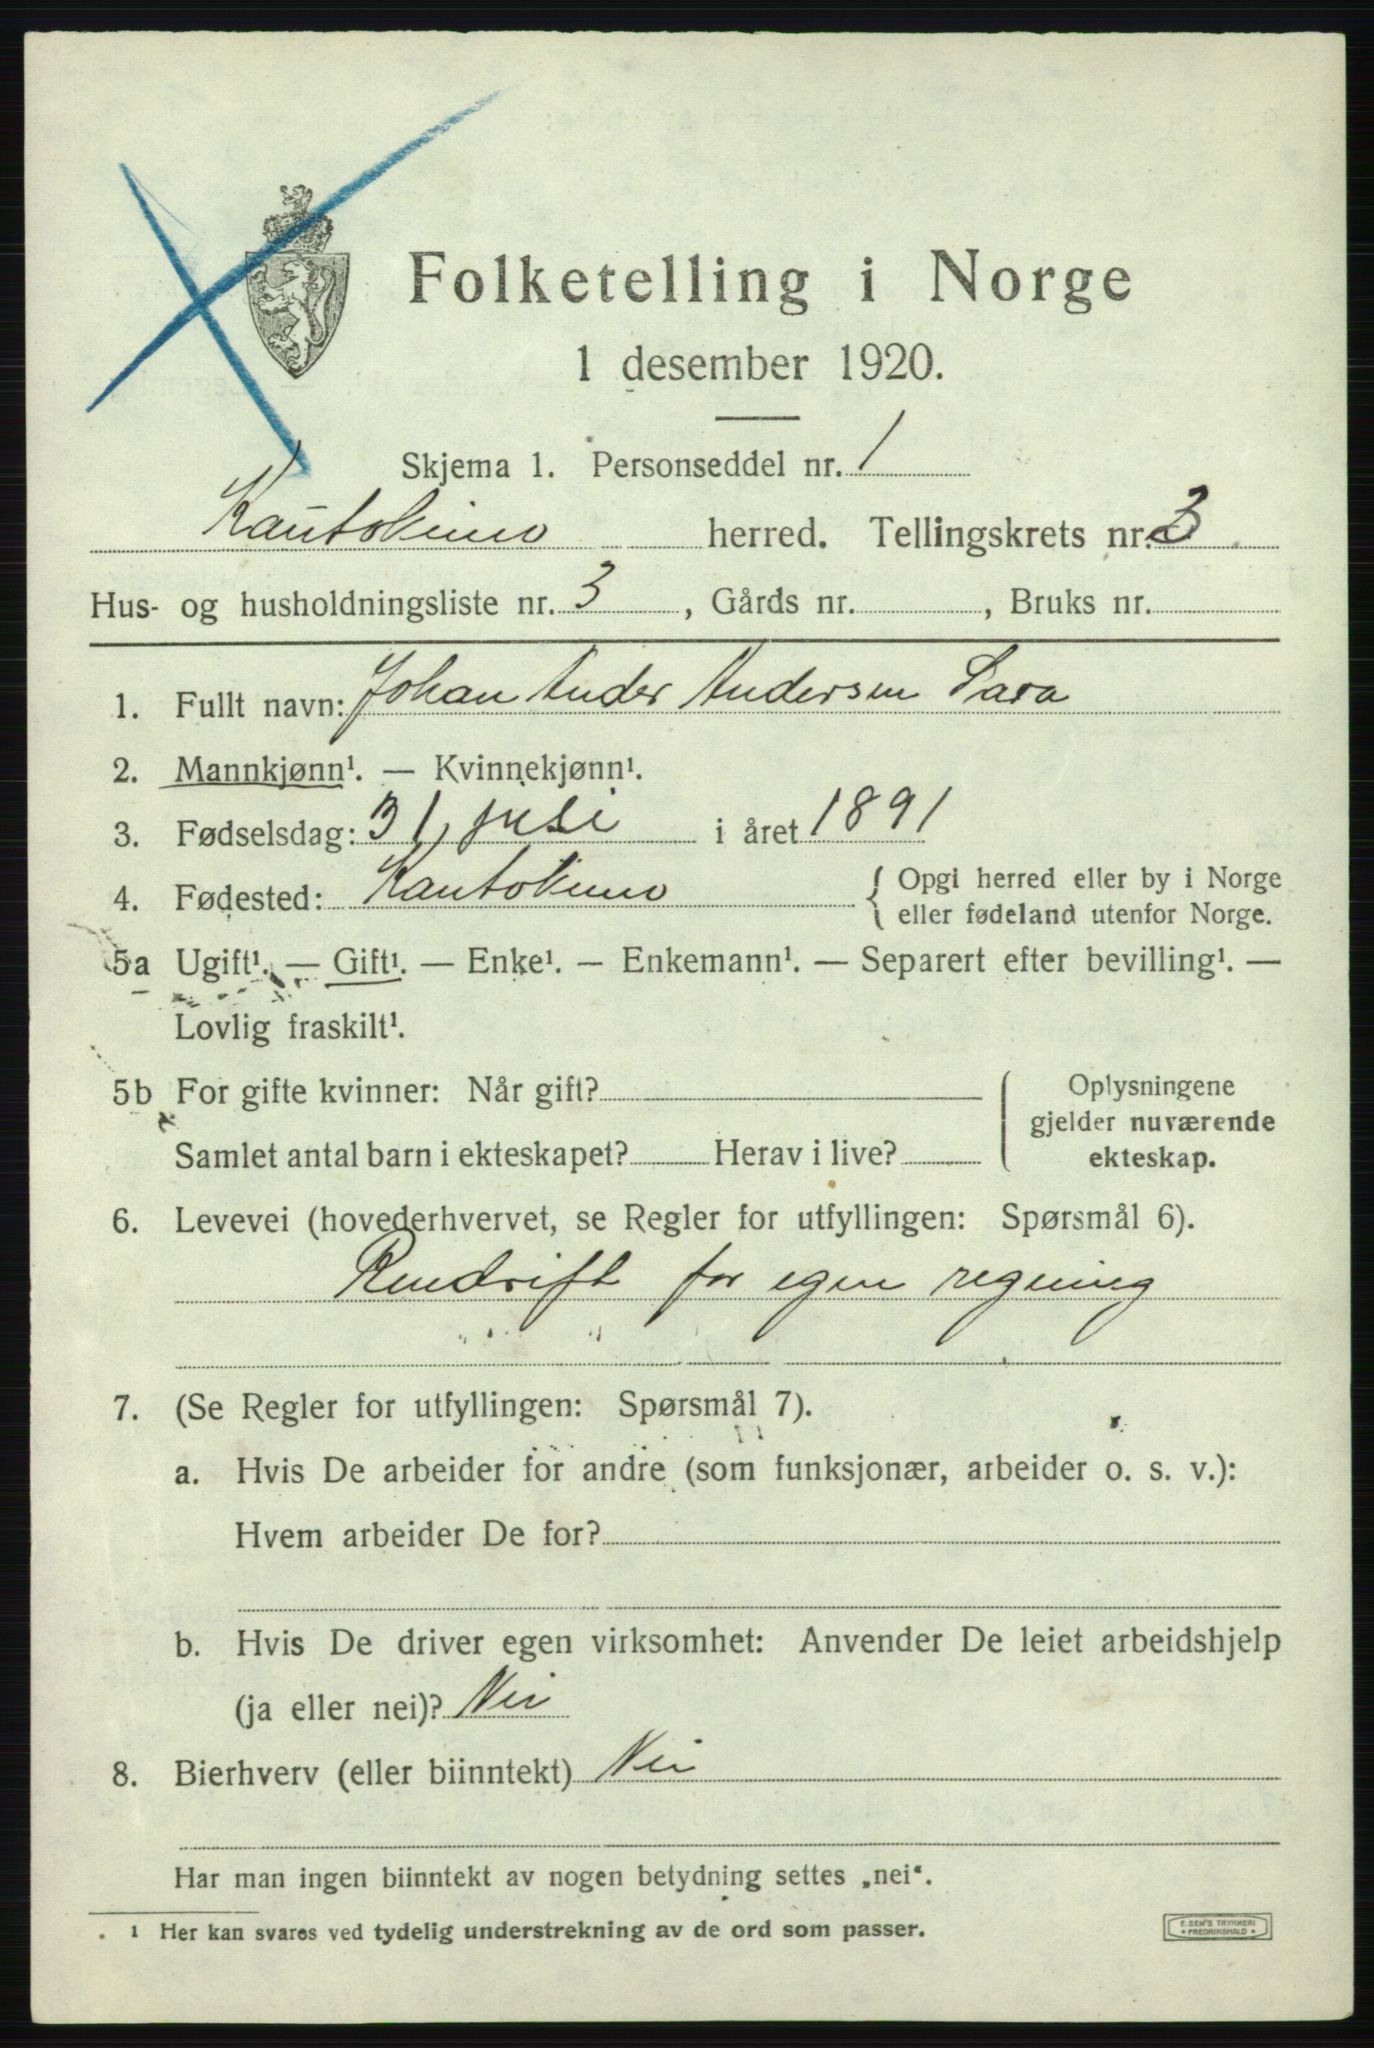 Folketelling i Norge
1 desember 1920.
Skjema 1. Personseddel nr. 1
Kautokeino herred. Tellingskrets nr. 3
Hus- og husholdningsliste nr. 3, Gårds nr. , Bruks nr.
1. Fullt navn: Johan Ander Andersen Sara
2. Mannkjønn¹. — Kvinnekjønn¹.
3. Fødselsdag: 31 juli i året 1891
4. Fødested: Kautokeino { Opgi herred eller by i Norge
eller fødeland utenfor Norge.
5a Ugift¹. — Gift¹. — Enke¹. — Enkemann¹. — Separert efter bevilling¹. —
Lovlig fraskilt¹.
5b For gifte kvinner: Når gift? Oplysningene
gjelder nuværende
Samlet antal barn i ekteskapet? Herav i live? ekteskap.
6. Levevei (hovederhvervet, se Regler for utfyllingen: Spørsmål 6).
Rendrift for egen regning
7. (Se Regler for utfyllingen: Spørsmål 7).
a. Hvis De arbeider for andre (som funksjonær, arbeider o. s. v.):
Hvem arbeider De for?
b. Hvis De driver egen virksomhet: Anvender De leiet arbeidshjelp
(ja eller nei)? Nei
8. Bierhverv (eller biinntekt) Nei
Har man ingen biinntekt av nogen betydning settes „nei“.
¹ Her kan svares ved tydelig understrekning av de ord som passer.
E. SEM'S TRYKKERI
FREDRIKSHALD